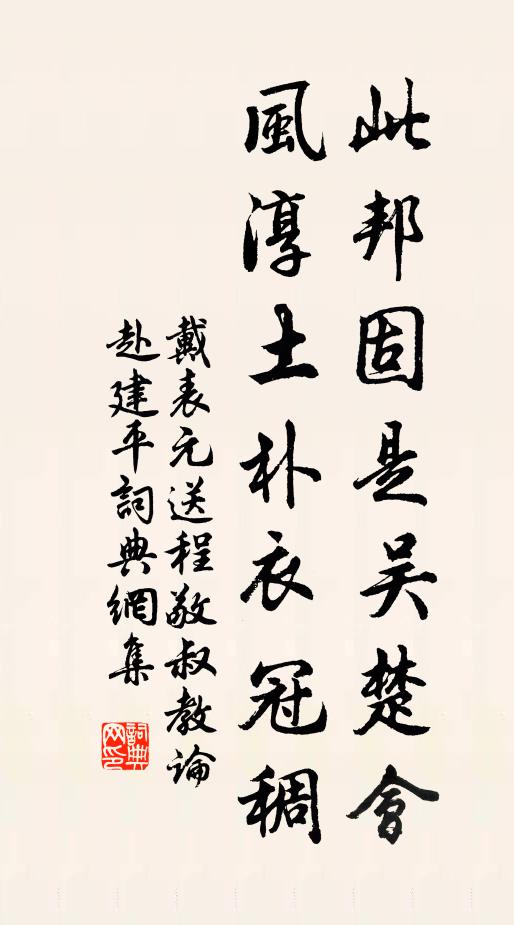 此邦固是吴楚會
風淳土朴衣冠稠
戴表元送程敬叔教論
赴建平詞典網集
詞典网印